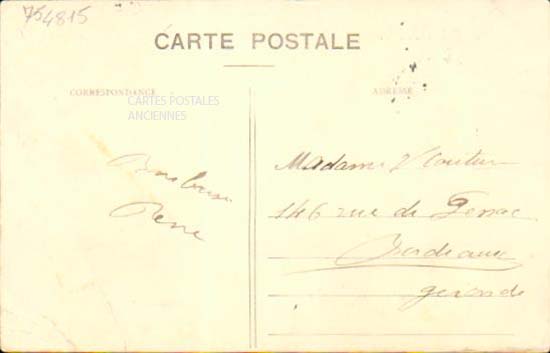 754815
CARTE POSTALE
CORRESPONDANCE
ADRESSE
CARTES POSTALES
ANCIENNES
Bons baisers
René
Madame V Couture
146 rue de Pessac
Bordeaux
gironde